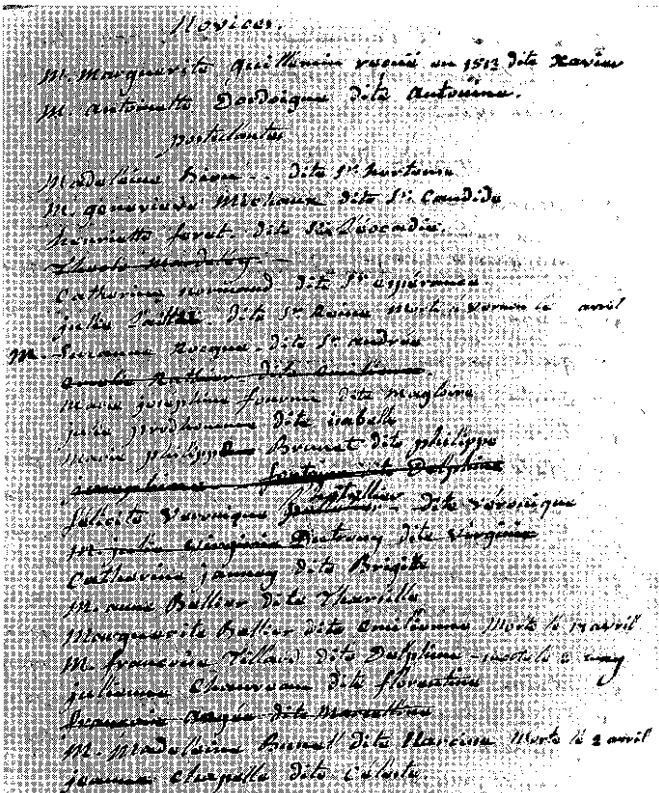 Novices.
M. Marguerite Guillemin dite Xavier
M. Antoinette Dordoigne dite Antoinine.
postulantes
Madelaine dite Sr hortense
M. genevieve Michaux dite Sr Candide
henriette foret dite Ste Léocadie.
Catherine normand dite Sr espérance
julie dite Sr Reine Morte avril
M. Suzanne Rocque dite Sr andrée
emelie Rathier dite
Marie josephine fournier dite Magloire
julie prodhomme dite isabelle
Marie philippe Brunet dite philippe
josephine dite Delphine
félicité Veronique Batillier dite véronique
M. julie virginie dite Virginie
Catherine janney dite Brigitte
M. anne Ballier dite Tharsille
Marguerite Ballier dite emilienne Morte le 14 avril
M. françoise Tillard dite Delphine morte le may
julienne Chauveau dite florentine
francoise dite Marcelline
M. Madelaine Brunet dite Narcisse Morte le 2 avril
jeanne Chapelle dite Céleste.